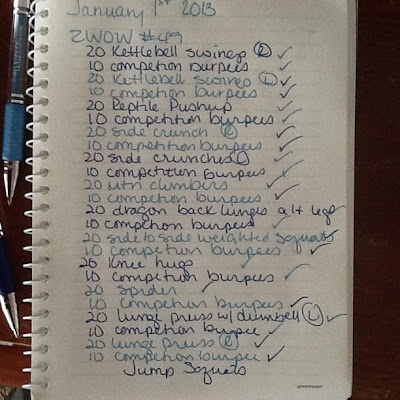 January 1st 2013
ZWOW #49
20 Kettlebell swings (R) ✓
10 competion burpees ✓
20 Kettlebell swings (L) ✓
10 competion burpees ✓
20 Reptile Pushup ✓
10 competition burpees ✓
20 side crunch (R) ✓
10 competition burpees ✓
20 side crunches (L) ✓
10 competition burpees ✓
20 mtn climbers ✓
10 competion burpees ✓
20 dragon back lunges alt legs ✓
10 competion burpees ✓
20 side to side weighted squats ✓
10 competion burpees ✓
20 Knee hugs ✓
10 competion burpees ✓
20 spider ✓
10 competion burpees ✓
20 lunge press w/ dumbell (L) ✓
10 competion burpee ✓
20 lunge press (R) ✓
10 competion burpee ✓
Jump Squats